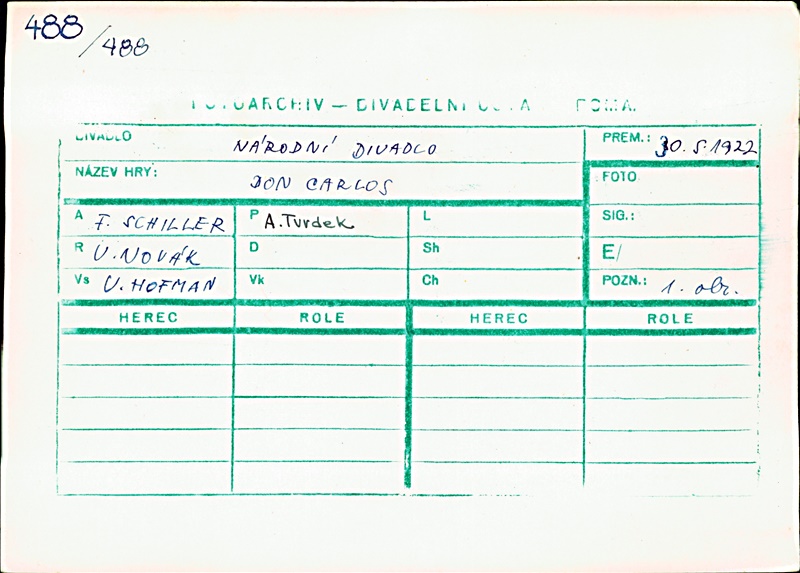 488/488
DIVADELNÍ
DIVADLO NÁRODNÍ DIVADLO PREM.: 30.5.1922
NÁZEV HRY: DON CARLOS FOTO
A F. SCHILLER P A. Turdek L SIG.:
R V. NOVÁK D Sh E/
Vs V. HOFMAN Vk Ch POZN.: 1. obr.
HEREC ROLE HEREC ROLE